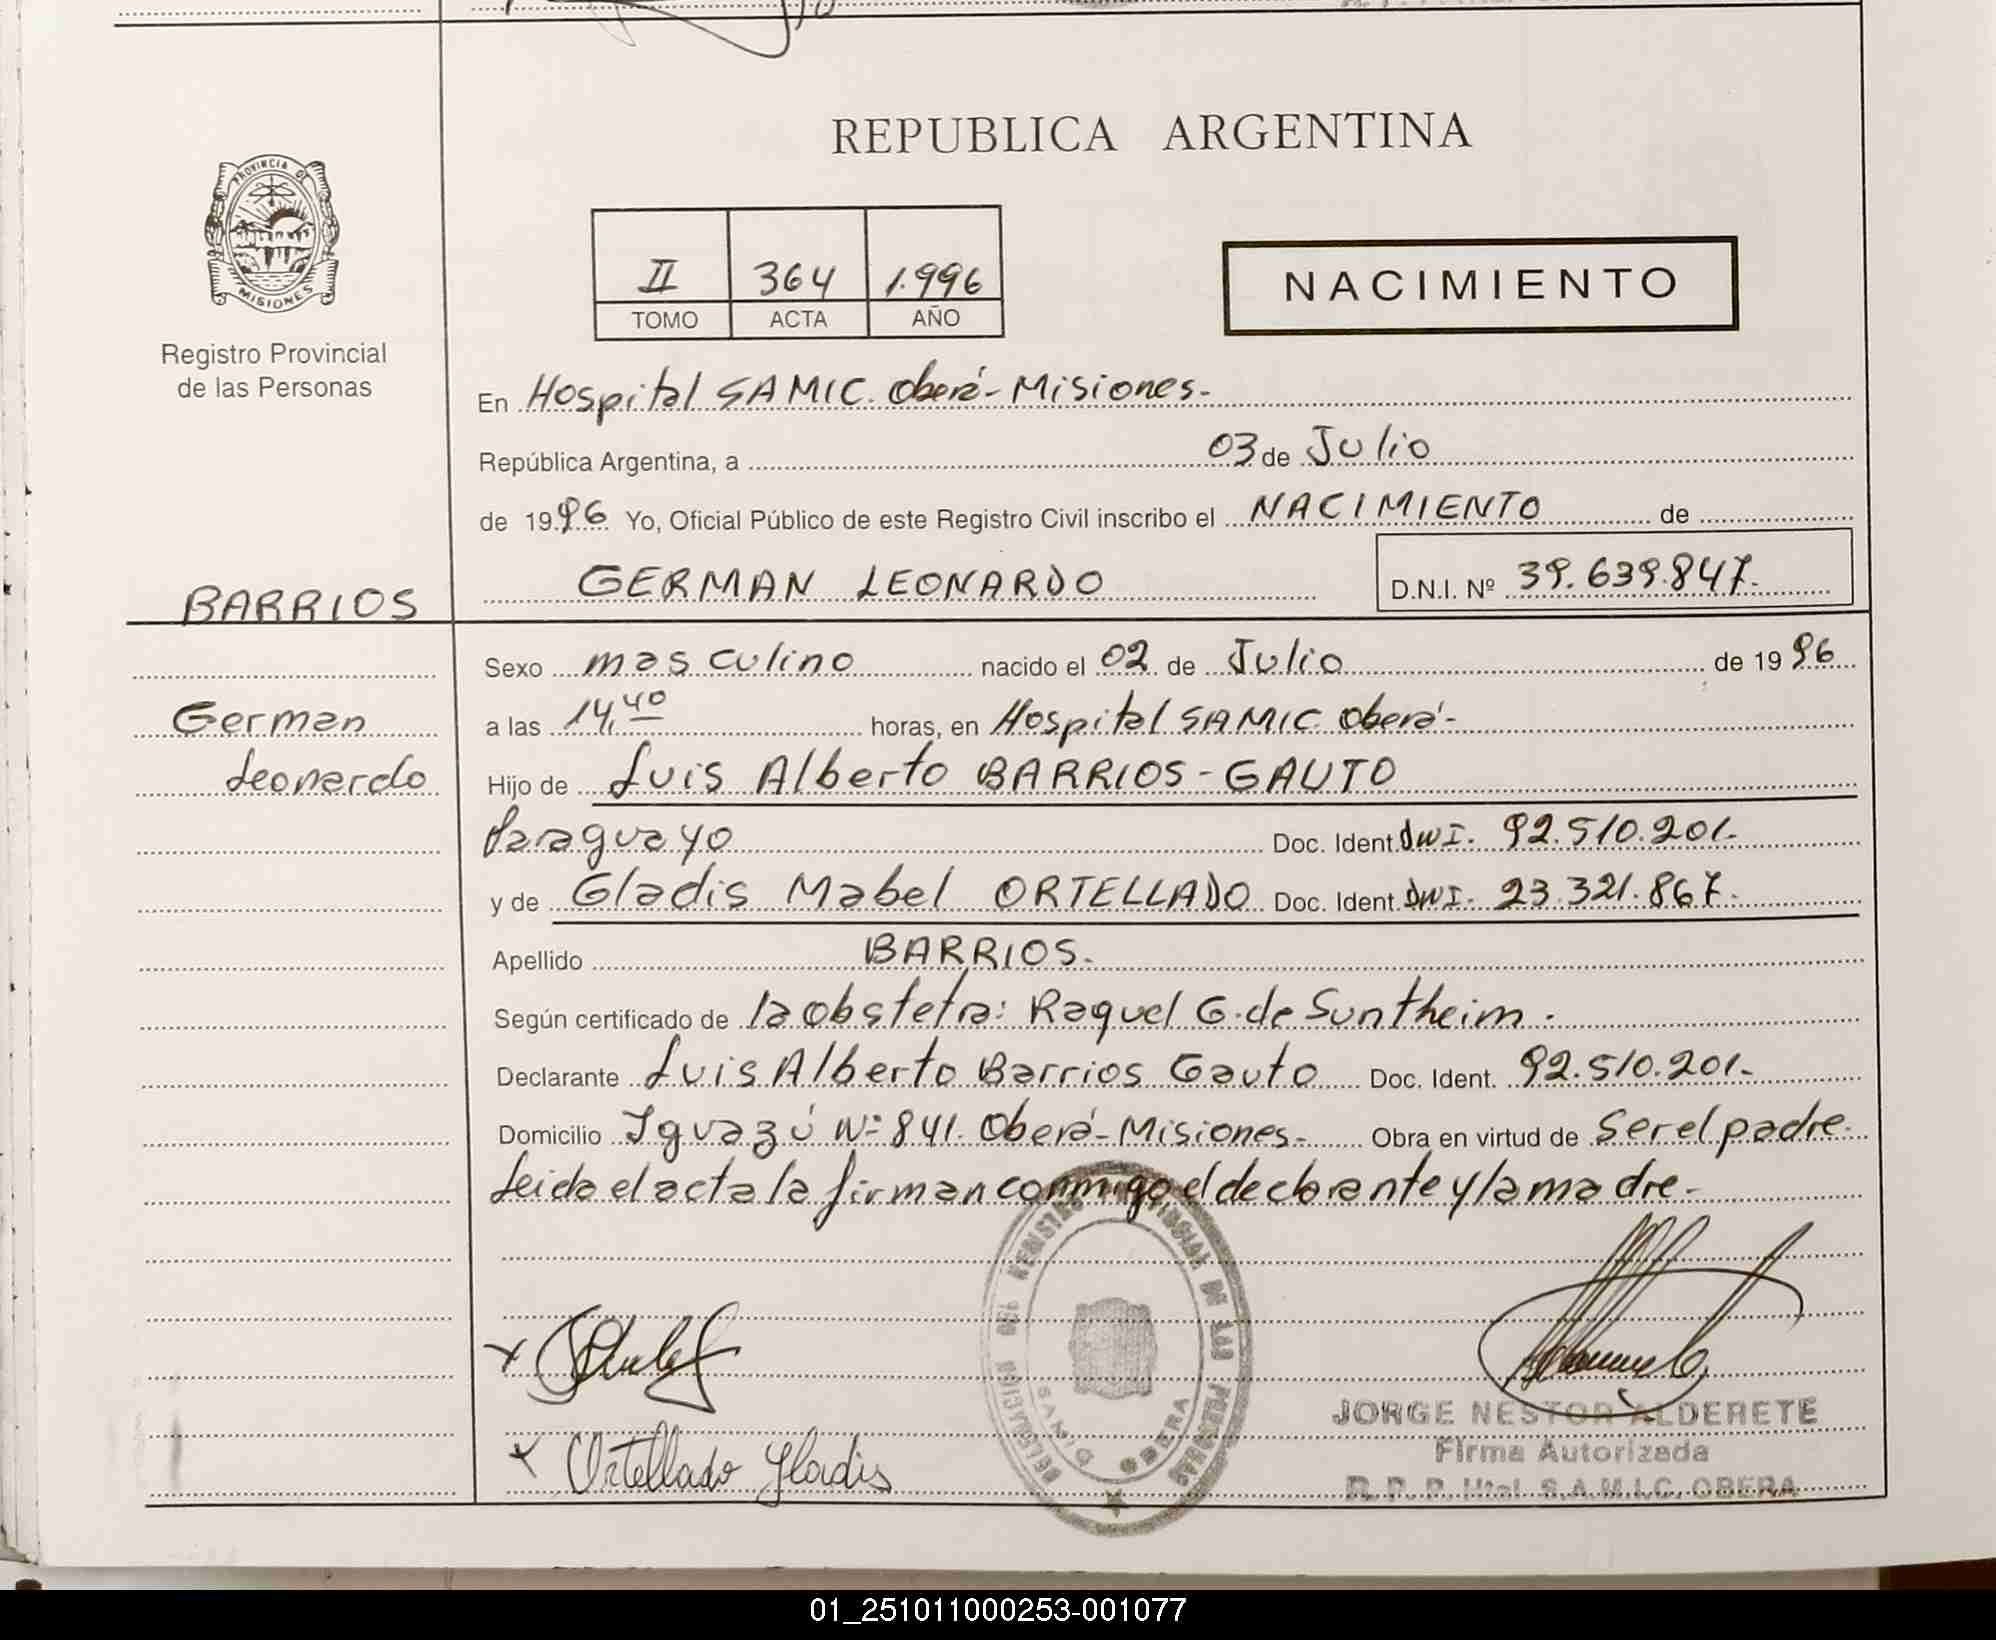 REPUBLICA ARGENTINA
PROVINCIA DE
MISIONES
Registro Provincial
de las Personas
II 364 1.996
TOMO ACTA AÑO
NACIMIENTO
En Hospital SAMIC. Oberá - Misiones.-
República Argentina, a 03 de Julio
de 1996 Yo, Oficial Público de este Registro Civil inscribo el NACIMIENTO de
BARRIOS
GERMAN LEONARDO D.N.I. Nº 39.639.847.-
German
Leonardo
Sexo masculino nacido el 02 de Julio de 1996
a las 14,40 horas, en Hospital SAMIC. Oberá-
Hijo de Luis Alberto BARRIOS-GAUTO
Paraguayo Doc. Ident. DNI. 92.510.201.-
y de Gladis Mabel ORTELLADO Doc. Ident. DNI. 23.321.867.-
Apellido BARRIOS.-
Según certificado de la obstetra: Raquel G. de Suntheim.-
Declarante Luis Alberto Barrios Gauto Doc. Ident. 92.510.201.-
Domicilio Iguazú Nº 841. Oberá - Misiones.- Obra en virtud de Ser el padre.
Leida el acta la firman conmigo el declarante y la madre.-
DELEGACION DEL REGISTRO PROVINCIAL DE LAS PERSONAS
OBERA
x
x Ortellado Gladis
JORGE NESTOR ALDERETE
Firma Autorizada
R. P. P. Htal. S.A.M.I.C. OBERA
01_251011000253-001077